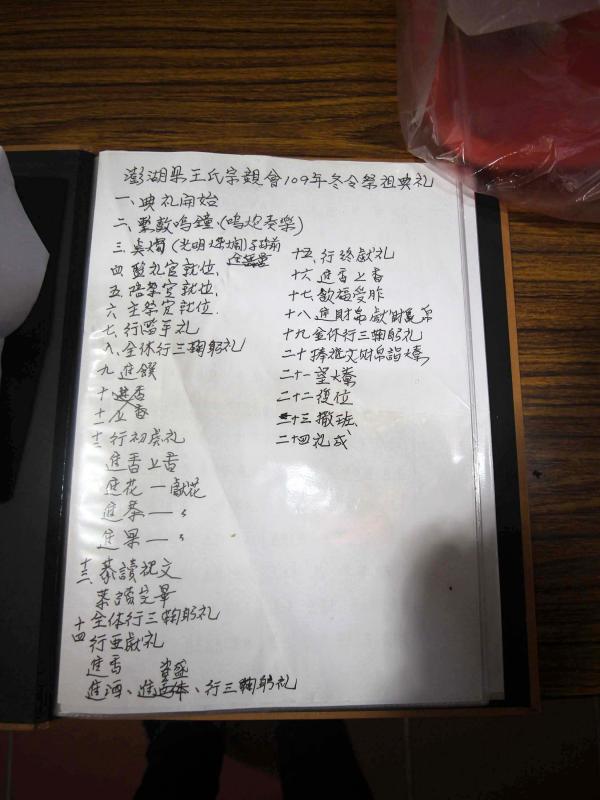 澎湖県王氏宗親會109年冬令祭祖典礼
一、典礼開始
二、擊鼓鳴鐘、(鳴炮奏樂)
三、奠燭(光明燦爛)子孫前
四、監礼官就位、
五、陪祭官就位、
六、主祭官就位.
七、行盥手礼
八、全体行三鞠躬礼
九、進饌
十、進香
十一、上香
十二、行初獻礼
進香上香
進花一獻花
進茶一〃
進果一〃
十三、恭讀祝文
恭讀完畢
全体行三鞠躬礼
十四 行亜獻礼
進香 資盛
進酒、進、行三鞠躬礼
十五、行終獻礼
十六、進香上香
十七、飲福受胙
十八、進財帛獻財帛
十九、全体行三鞠躬礼
二十、捧祝文財帛詣燎
二十一、望燎
二十二、復位
二十三、撤班、
二十四 礼成